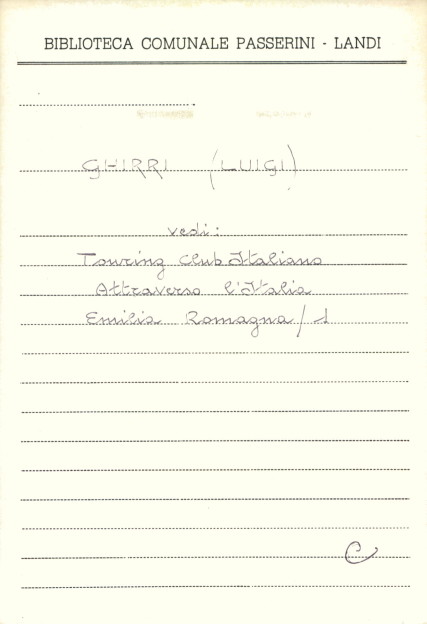 BIBLIOTECA COMUNALE PASSERINI - LANDI
GHIRRI (LUIGI)
vedi:
Touring Club Italiano
Attraverso l'Italia
Emilia Romagna/1
C